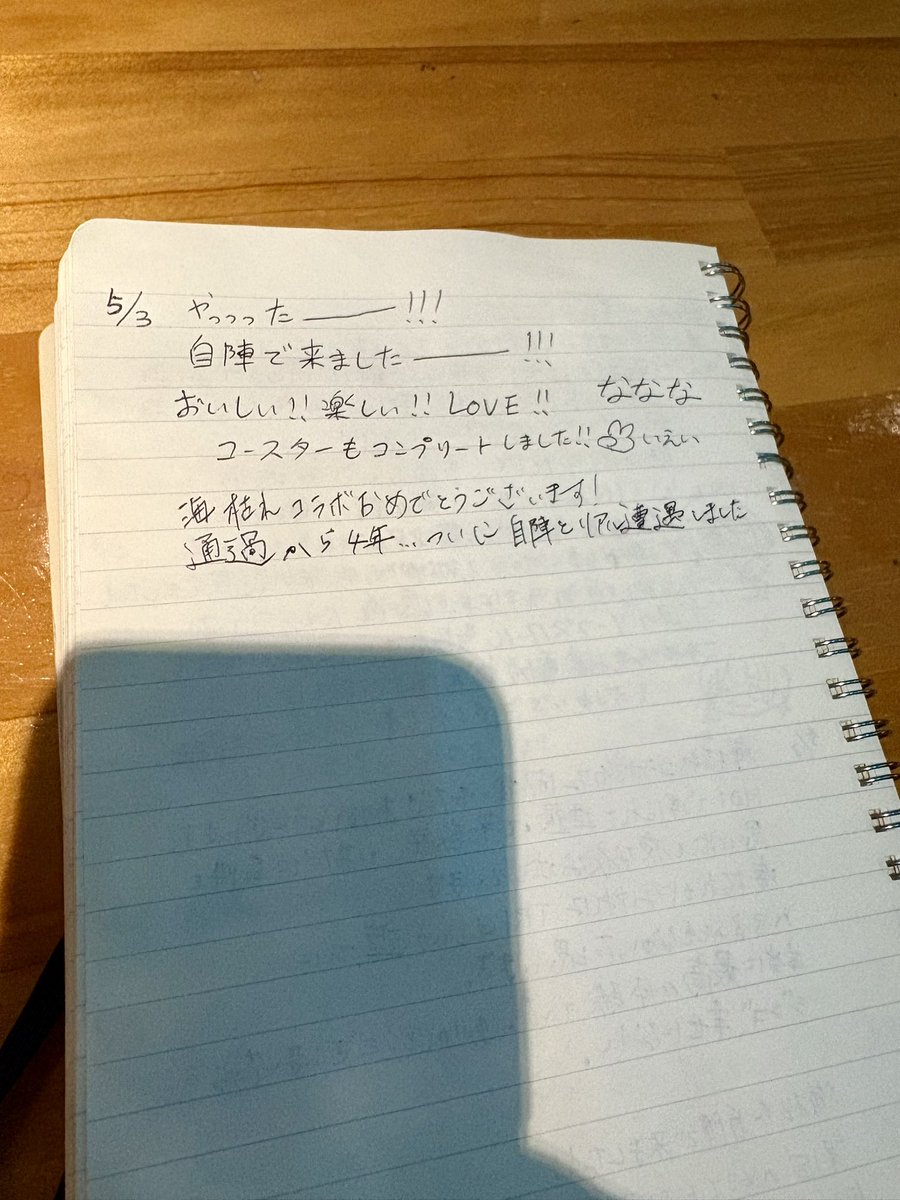 5/3 やっっった――!!!
自陣で来ました――!!!
おいしい!! 楽しい!! LOVE!! ななな
コースターもコンプリートしました!! いえい
海枯れコラボおめでとうございます!
通過から4年…ついに自陣とリアル遭遇しました